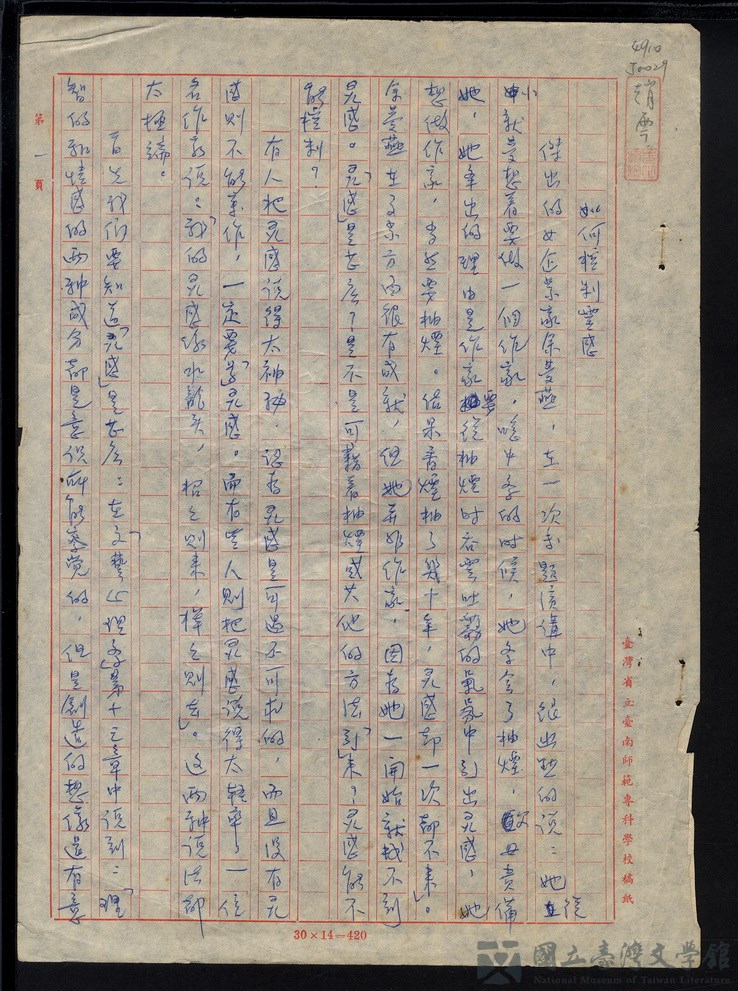 4910
J0029
趙雲
如何控制靈感
傑出的女企業家余夢燕，在一次專題演講中，很幽默的說：她從
小就夢想著要做一個作家，唸中學的時候，她學會了抽煙，父母責備
她，她舉出的理由是作家要從抽煙時吞雲吐霧的氣氛中引出灵感，她
想做作家，当然要抽煙。结果香煙抽了幾十年，灵感却一次都不來。
余夢燕在事業方面很有成就，但她並非作家，因為她一開始就找不到
灵感。「灵感」是甚么？是不是可藉着抽煙或其他的方法「引」來？灵感能不
能控制？
有人把灵感說得太神秘，認為灵感是可遇不可求的，而且沒有灵
感則不能事作，一定要「等」灵感。而有些人則把灵感說得太輕率了，一位
名作家說：「我的灵感像水龍头，招之則來，揮之則去」。这兩种說法都
太極端。
首先我们要知道「灵感」是甚么：在「文藝心理学」第十三章中說到：「理
智的和情感的兩种成分都是意识所能察覺的，但是創造的想像還有意
第一頁
臺灣省立臺南師範專科學校稿紙
30×14=420
國立臺灣文學館
National Museum of Taiwan Literature